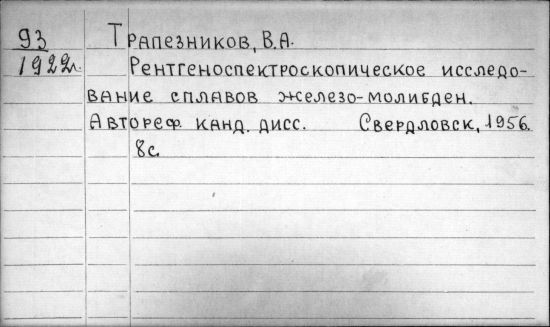 93 Трапезников, В.А.
1922л. Рентгеноспектроскопическое исследо-
вание сплавов железо-молибден.
Автореф. канд. дисс. Свердловск, 1956.
8с.